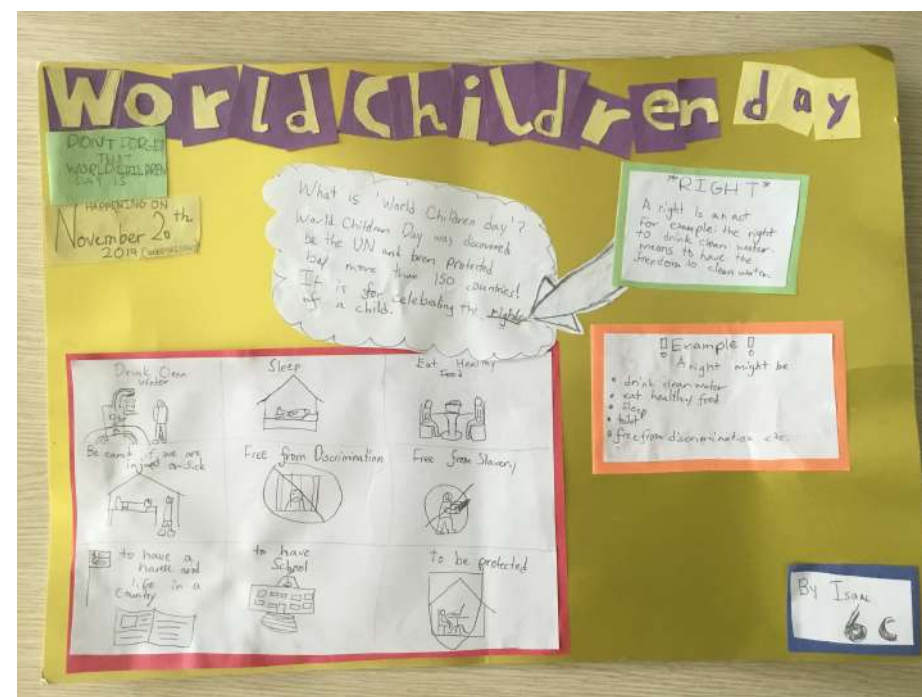 World Children day
DONT FORGET
THAT
WORLD CHILDREN
DAY IS
HAPPENING ON
November 20th
2019
What is 'World Children day'?
World Children Day was discovered
be the UN and been protected
bay more than 150 countries!
It is for celebrating the rights
of a child.
"RIGHT"
A right is an act
for example: the right
to drink clean water
means to have the
freedom to clean water.
! Example !
A right might be
• drink clean water
• eat healthy food
• sleep
•
• free from discrimination etc.
Drink Clean
Water
Sleep
Eat Healthy
Food
Be cared if we are
injured or sick
Free from Discrimination
Free from Slavery
to have a
name and
life in a
Country
to have
School
To be protected
By Isaac
6C